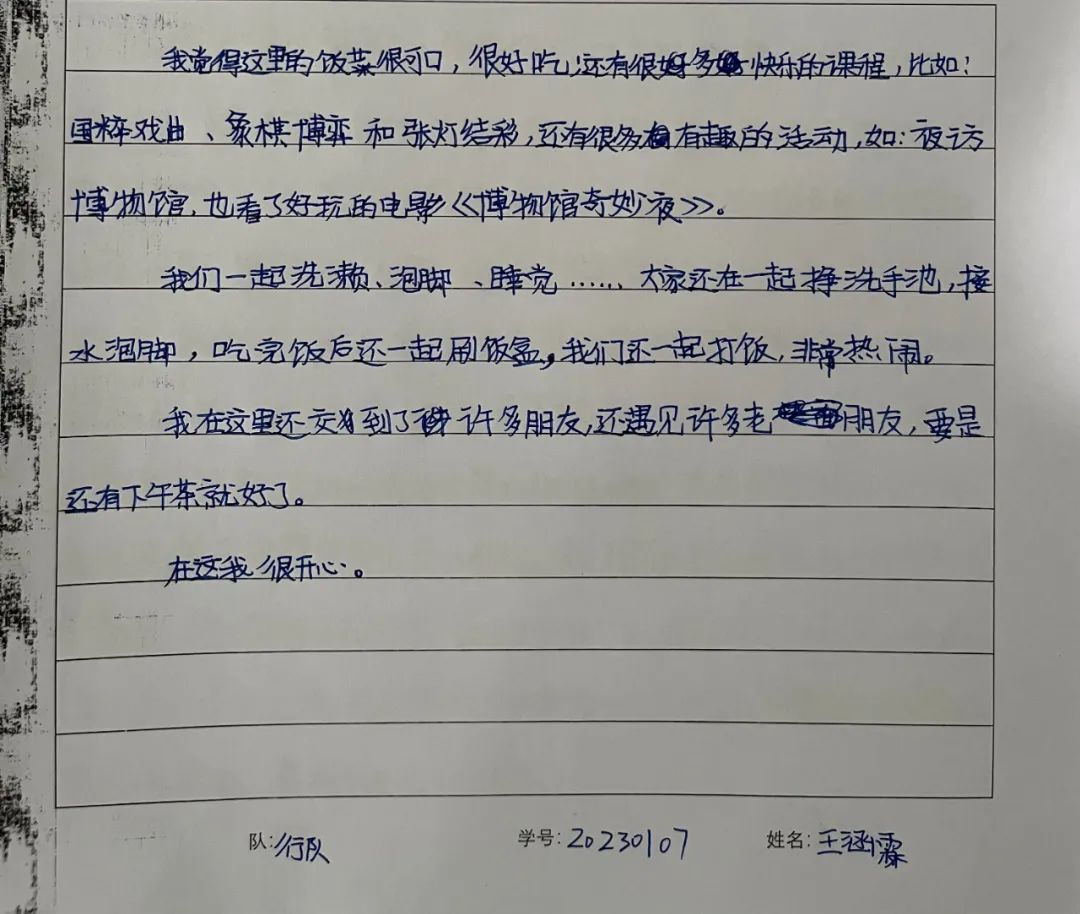 我觉得这里的饭菜很可口，很好吃；还有很多快乐的课程，比如：
国粹戏曲、象棋博弈和张灯结彩，还有很多有趣的活动，如：夜访
博物馆，也看了好玩的电影《博物馆奇妙夜》。
我们一起洗濑、泡脚、睡觉……大家还在一起挣洗手池，接
水泡脚，吃完饭后还一起刷饭盒，我们还一起打饭，非常热闹。
我在这里还交到了许多朋友，还遇见许多老朋友，要是
还有下午茶就好了。
在这我很开心。
队：行队 学号：20230107 姓名：王涵霖